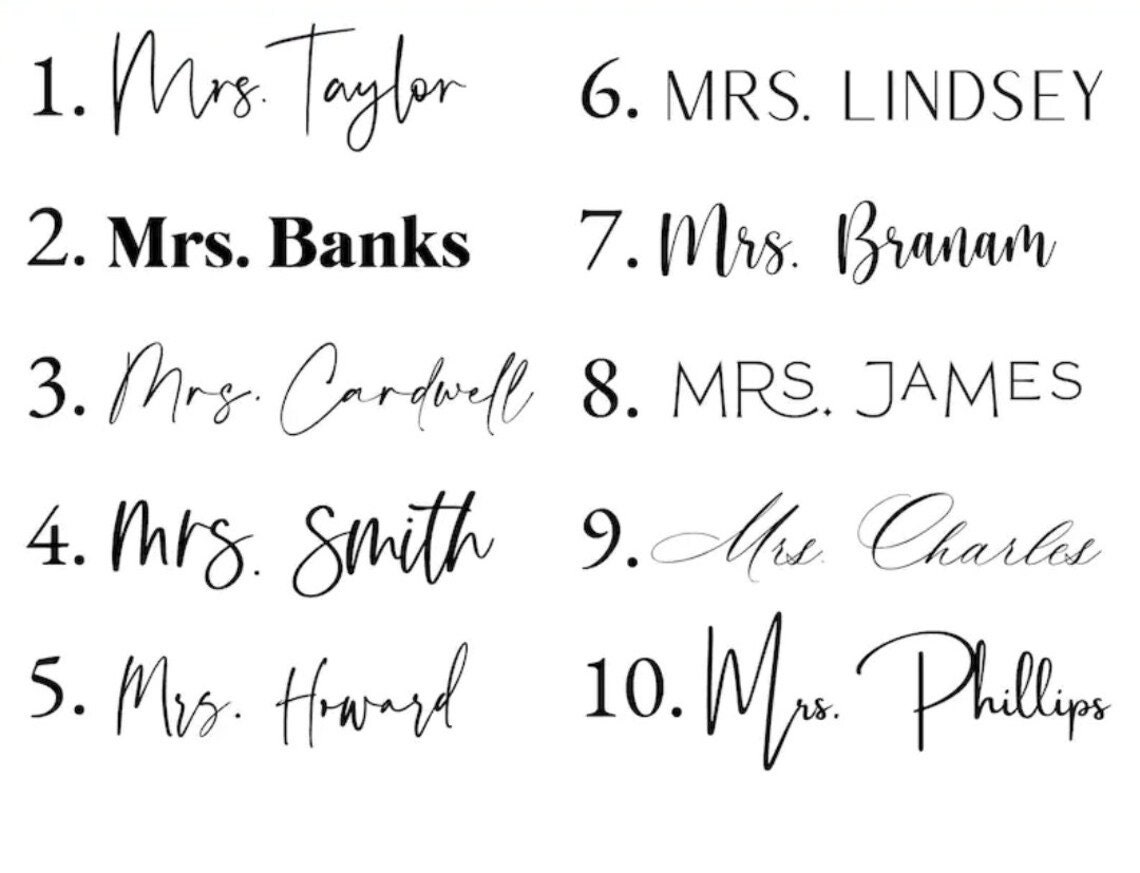 1. Mrs. Taylor
2. Mrs. Banks
3. Mrs. Cardwell
4. Mrs. Smith
5. Mrs. Howard
6. MRS. LINDSEY
7. Mrs. Branam
8. MRS. JAMES
9. Mrs. Charles
10. Mrs. Phillips